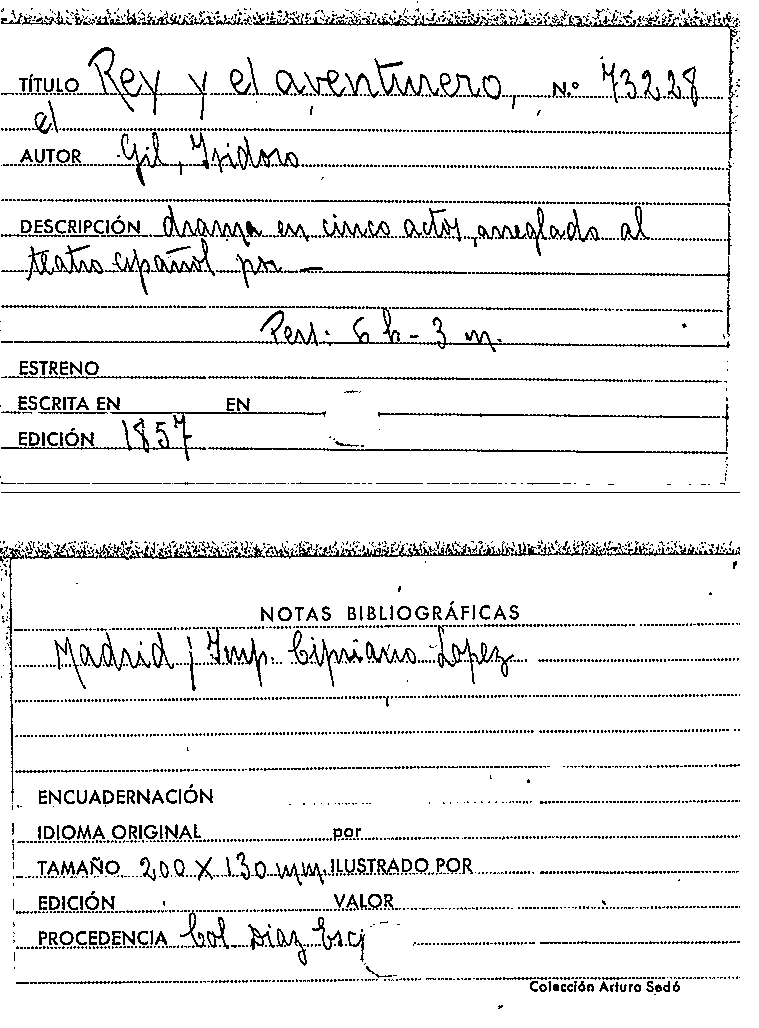 TÍTULO Rey y el aventurero, N.º 73228
el
AUTOR Gil, Isidoro
DESCRIPCIÓN drama en cinco actos, arreglado al
teatro español por —
Pers: 6 h - 3 m.
ESTRENO
ESCRITA EN EN
EDICIÓN 1857
NOTAS BIBLIOGRÁFICAS
Madrid / Imp. Cipriano Lopez
ENCUADERNACIÓN
IDIOMA ORIGINAL por
TAMAÑO 200 X 130 mm ILUSTRADO POR
EDICIÓN VALOR
PROCEDENCIA Col Diaz Esc
Colección Arturo Sedó